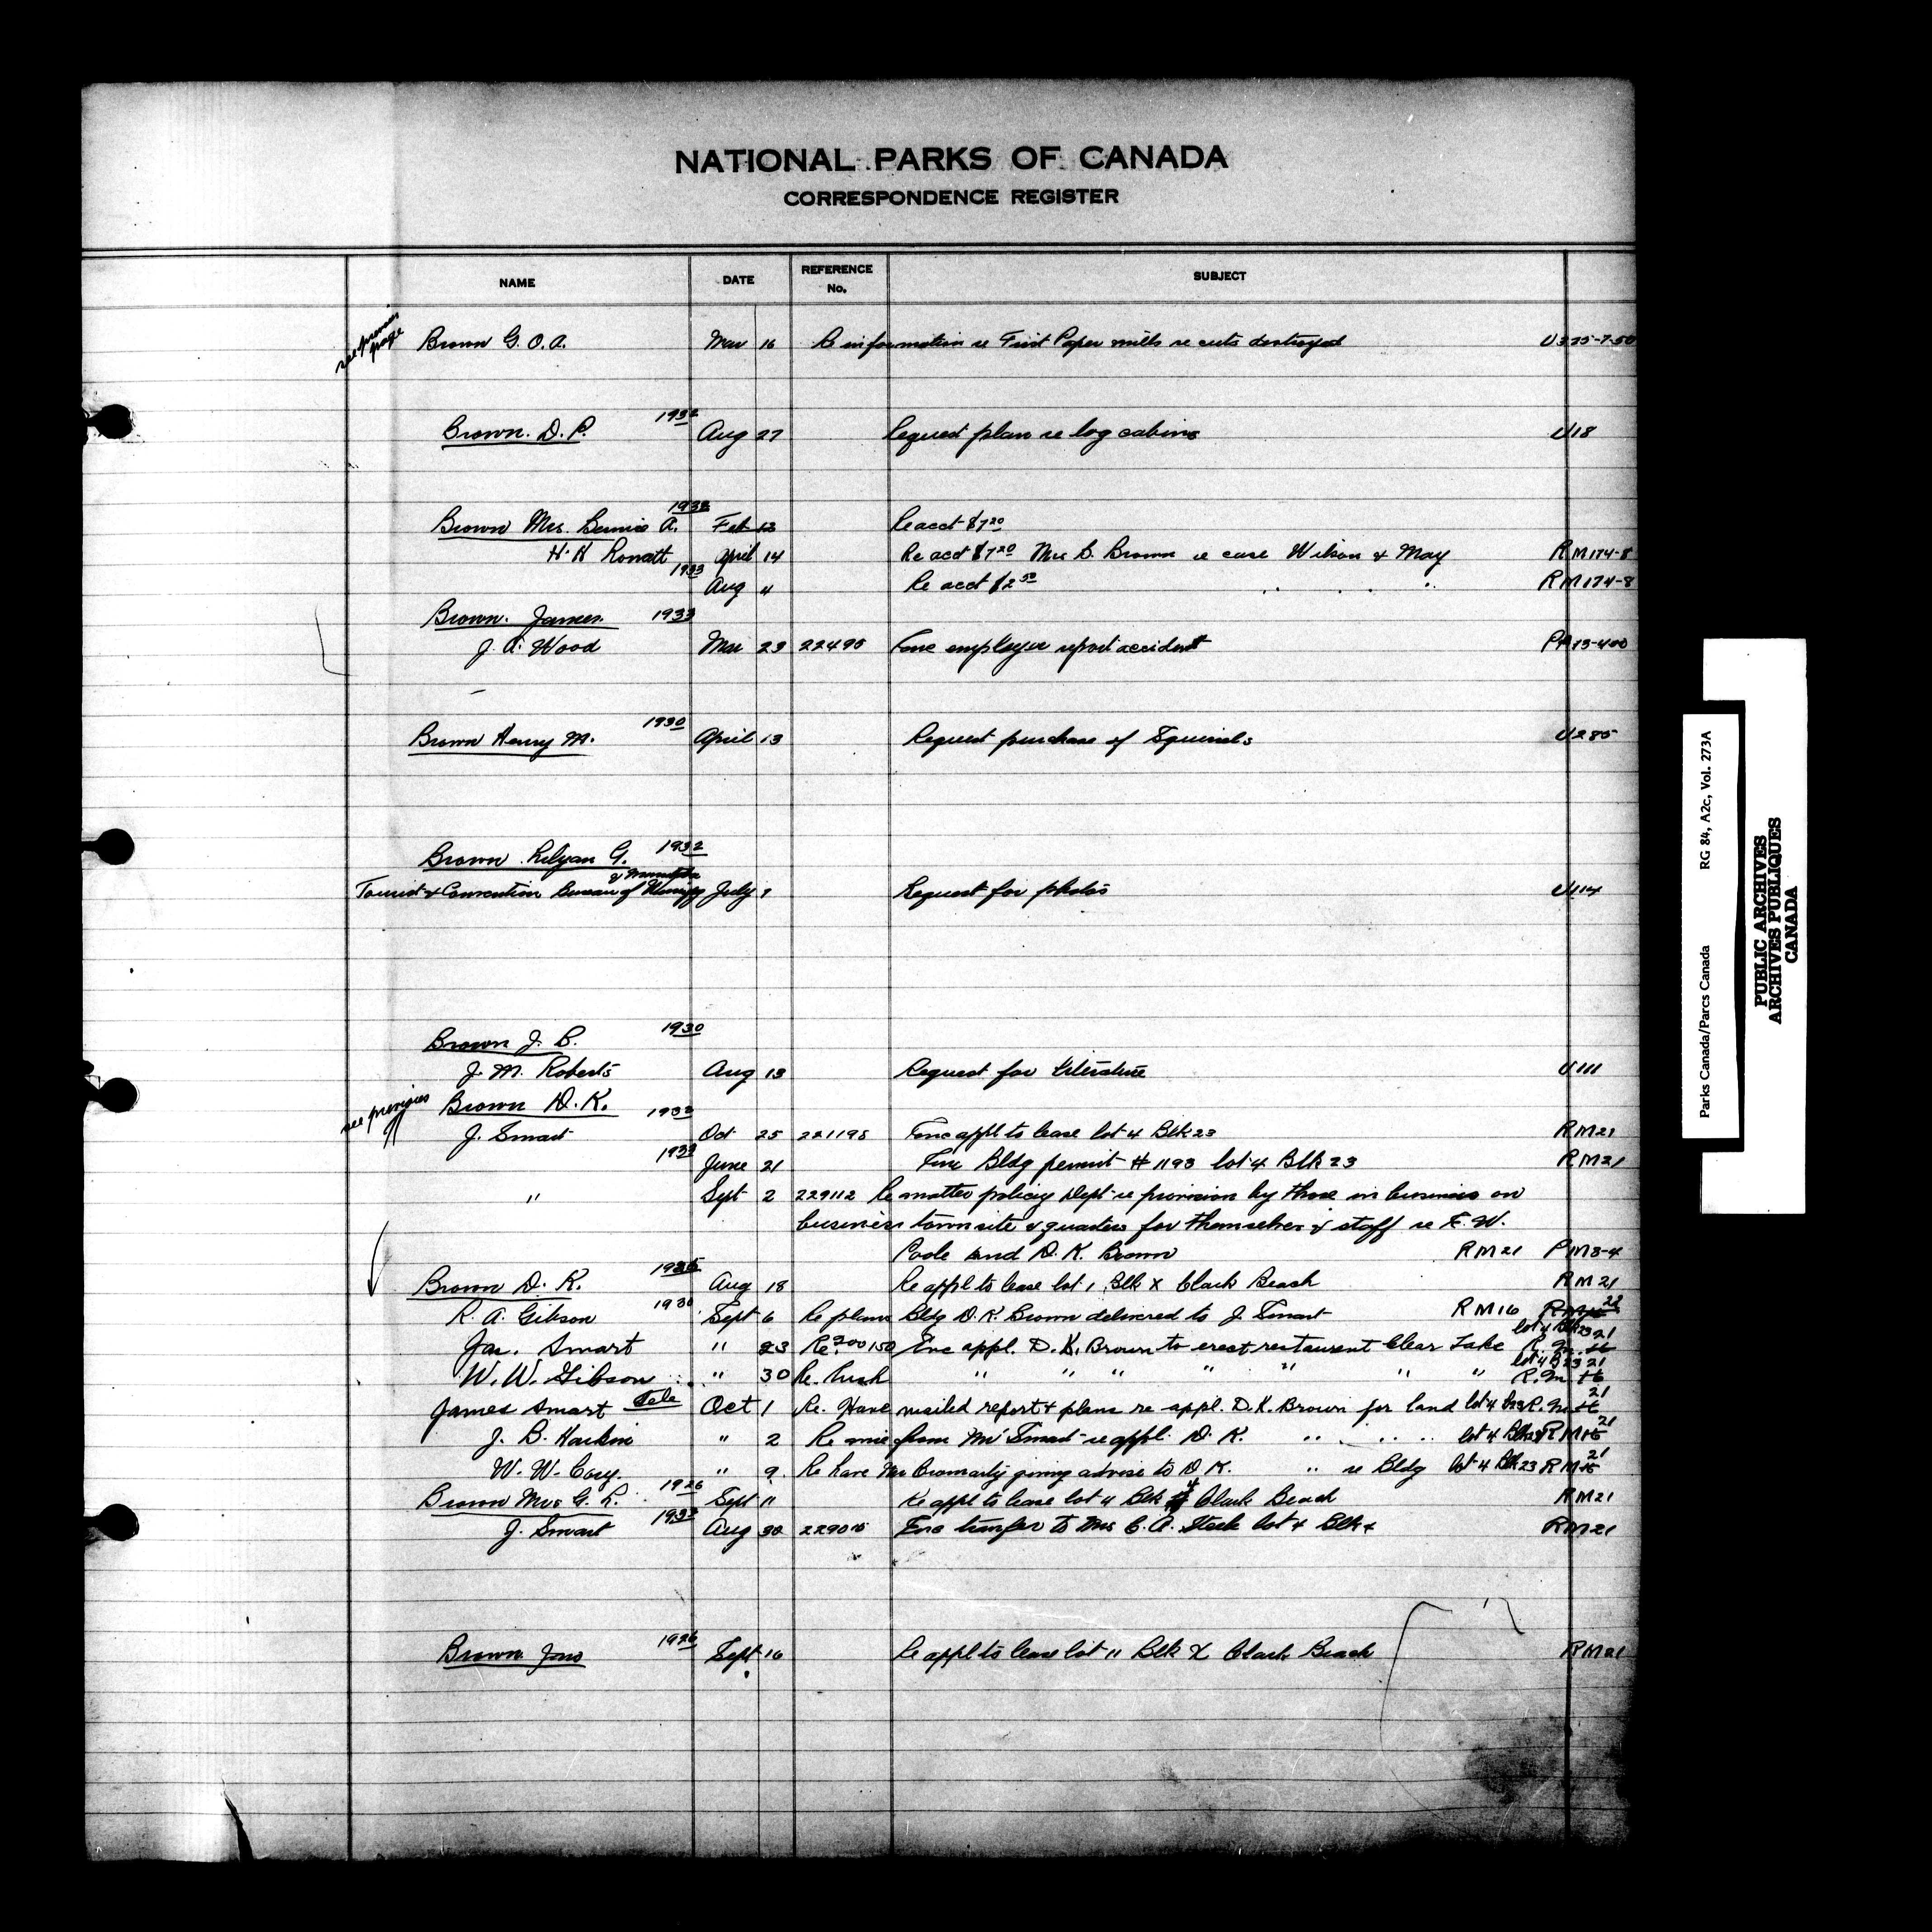 NATIONAL PARKS OF CANADA
CORRESPONDENCE REGISTER
NAME DATE REFERENCE No. SUBJECT
see previous page
Brown G. O. A. Mar 16 Re information re First Paper mills re cuts destroyed U325-7-50
1932
Brown. D. P. Aug 27 Request plan re log cabins U18
1932
Brown Mrs. Bernice A. Feb 13 Re acct $7 20
H. H Ronatt April 14 Re acct $7 20 Mrs B. Brown re case Wilson & May RM174-8
1933
Aug 4 Re acct $2 50 " " " " RM174-8
Brown. James. 1933
J. A. Wood Mar 29 22490 Enc employer report accident
1930
Brown Henry M. April 13 Request purchase of Squirrels U285
Brown Lilyan G. 1932
Tourist & Convention Bureau of Winnipeg July 9 Request for photos U114
1930
Brown J. B.
J. M. Roberts Aug 13 Request for literature U111
see previous
Brown D. K. 1932
J. Smart Oct 25 221195 Enc appl to lease lot 4 Blk 23 RM21
1933
June 21 Enc Bldg permit # 1193 lot 4 Blk 23 RM21
" Sept 2 229112 Re matter policy Dept re provision by those in business on
business townsite of quarters for themselves & staff re E. W.
Poole and D. K. Brown RM21 PM3-4
Brown D. K. Aug 18 Re appl to lease lot 1 Blk X Clark Beach RM21
R. A. Gibson 1930 Sept 6 Re plans Bldg D. K. Brown delivered to J. Smart RM16
Jas. Smart " 23 Re. Enc appl. D. K. Brown to erect restaurant Clear Lake lot 4 Blk 23 R.M. 21
W. W. Gibson " 30 Re. Rush " " " " " " " lot 4 B 23 R.M. 21
James Smart Tele Oct 1 Re. Have mailed report & plans re appl. D. K. Brown for land lot 4 R.M. 21
J. B. Harkin " 2 Re wire from Mr Smart re appl. D. K. " " " lot 4 Blk 23 RM 21
W. W. Cory. " 9. Re have Mr Cromarty giving advise to D. K. " re Bldg lot 4 Blk 23 RM 21
Brown Mrs G. L. 1926 Sept 11 Re appl to lease lot 4 Blk 4 Clark Beach RM21
J. Smart 1933 Aug 30 Enc transfer to Mrs C. A. Steele lot 4 Blk 4 RM21
Brown Jno 1926 Sept 16 Re appl to lease lot 11 Blk X Clark Beach RM21
Parks Canada/Parcs Canada RG 84, A2c, Vol. 273A
PUBLIC ARCHIVES
ARCHIVES PUBLIQUES
CANADA